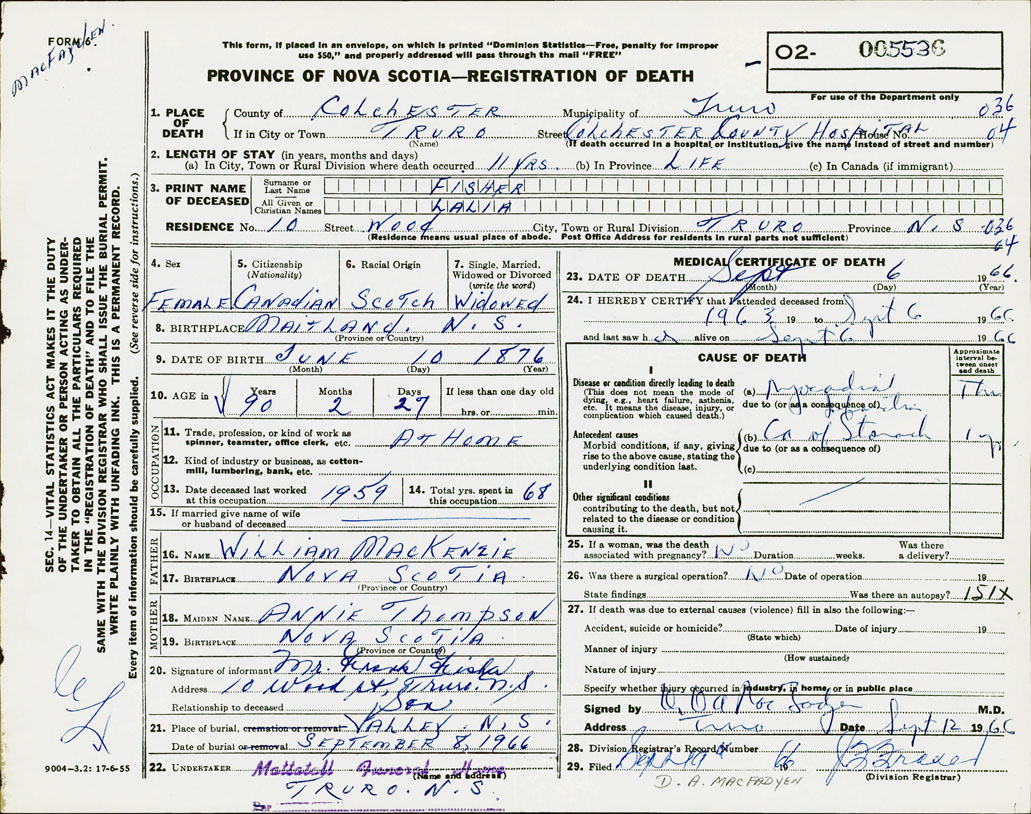 FORM 6.
MacFadyen.
This form, if placed in an envelope, on which is printed "Dominion Statistics—Free, penalty for improper
use $50," and properly addressed will pass through the mail "FREE"
PROVINCE OF NOVA SCOTIA—REGISTRATION OF DEATH
O2- 005536
For use of the Department only
1. PLACE OF DEATH
County of COLCHESTER Municipality of Truro 036
If in City or Town TRURO Street COLCHESTER COUNTY HOSPITAL House No. 04
(Name) (If death occurred in a hospital or institution, give the name instead of street and number)
2. LENGTH OF STAY (in years, months and days)
(a) In City, Town or Rural Division where death occurred 11 YRS. (b) In Province LIFE (c) In Canada (if immigrant)
3. PRINT NAME OF DECEASED
Surname or Last Name FISHER
All Given or Christian Names LALIA
RESIDENCE No. 10 Street WOOD City, Town or Rural Division TRURO Province N. S 036
(Residence means usual place of abode. Post Office Address for residents in rural parts not sufficient) 04
4. Sex 5. Citizenship (Nationality) 6. Racial Origin 7. Single, Married, Widowed or Divorced (write the word)
FEMALE CANADIAN SCOTCH WIDOWED
8. BIRTHPLACE MAITLAND. N.S.
(Province or Country)
9. DATE OF BIRTH JUNE 10 1876
(Month) (Day) (Year)
10. AGE in Years Months Days If less than one day old
90 2 27 hrs. or min.
OCCUPATION
11. Trade, profession, or kind of work as spinner, teamster, office clerk, etc. AT HOME
12. Kind of industry or business, as cotton-mill, lumbering, bank, etc.
13. Date deceased last worked at this occupation 1959 14. Total yrs. spent in this occupation 68
15. If married give name of wife or husband of deceased
FATHER
16. NAME WILLIAM MACKENZIE
17. BIRTHPLACE NOVA SCOTIA
(Province or Country)
MOTHER
18. MAIDEN NAME ANNIE THOMPSON
19. BIRTHPLACE NOVA SCOTIA
(Province or Country)
20. Signature of informant Mr. Frank Fisher
Address 10 Wood st, Truro. N.S.
Relationship to deceased Son
21. Place of burial, cremation or removal VALLEY. N.S.
Date of burial or removal SEPTEMBER 8, 1966
22. UNDERTAKER Mattatall Funeral Home
(Name and address)
TRURO. N.S.
Per
MEDICAL CERTIFICATE OF DEATH
23. DATE OF DEATH Sept 6 1966
(Month) (Day) (Year)
24. I HEREBY CERTIFY that I attended deceased from
1963 19 to Sept 6 1966
and last saw h er alive on Sept 6 1966
CAUSE OF DEATH
Approximate interval between onset and death
I
Disease or condition directly leading to death
(This does not mean the mode of dying, e.g., heart failure, asthenia, etc. It means the disease, injury, or complication which caused death.)
(a) Myocardial
due to (or as a consequence of)
Antecedent causes
Morbid conditions, if any, giving rise to the above cause, stating the underlying condition last.
(b) Ca of Stomach 1 yr
due to (or as a consequence of)
(c)
II
Other significant conditions
contributing to the death, but not related to the disease or condition causing it.
25. If a woman, was the death associated with pregnancy? NO Duration weeks. Was there a delivery?
26. Was there a surgical operation? NO Date of operation 19
State findings Was there an autopsy? 151X
27. If death was due to external causes (violence) fill in also the following:—
Accident, suicide or homicide? Date of injury 19
(State which)
Manner of injury
(How sustained)
Nature of injury
Specify whether injury occurred in industry, in home or in public place
Signed by D. A. MacFadyen M.D.
Address Truro Date Sept 12 1966
28. Division Registrar's Record Number
29. Filed Sept 19 1966
(Division Registrar)
D. A. MACFADYEN
SEC. 14—VITAL STATISTICS ACT MAKES IT THE DUTY
OF THE UNDERTAKER OR PERSON ACTING AS UNDER-
TAKER TO OBTAIN ALL THE PARTICULARS REQUIRED
IN THE "REGISTRATION OF DEATH" AND TO FILE THE
SAME WITH THE DIVISION REGISTRAR WHO SHALL ISSUE THE BURIAL PERMIT.
WRITE PLAINLY WITH UNFADING INK. THIS IS A PERMANENT RECORD.
Every item of information should be carefully supplied. (See reverse side for instructions.)
9004-3.2: 17-6-55